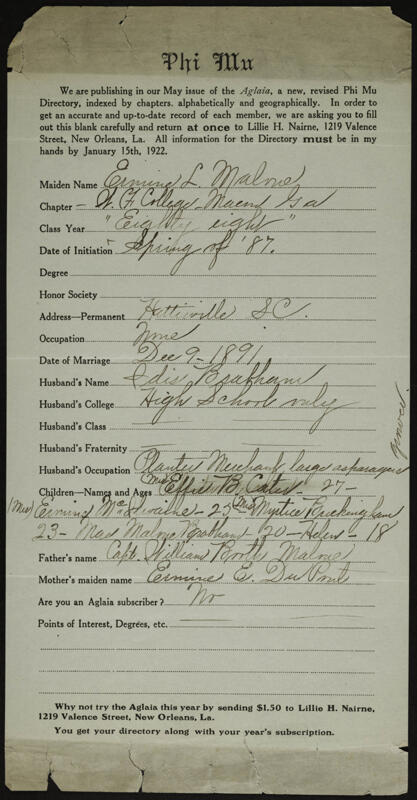 Phi Mu
We are publishing in our May issue of the Aglaia, a new, revised Phi Mu
Directory, indexed by chapters. alphabetically and geographically. In order to
get an accurate and up-to-date record of each member, we are asking you to fill
out this blank carefully and return at once to Lillie H. Nairne, 1219 Valence
Street, New Orleans, La. All information for the Directory must be in my
hands by January 15th, 1922.
Maiden Name Ermine L. Malone
Chapter - W. F. College Macon Ga
Class Year "Eighty eight"
Date of Initiation Spring of '87.
Degree
Honor Society
Address—Permanent Hattieville SC.
Occupation None
Date of Marriage Dec 9 - 1891
Husband's Name Brabham
Husband's College High School only
Husband's Class
Husband's Fraternity
Husband's Occupation Planter Merchant large asparagus grower
Children—Names and Ages (Mrs) Effie B. Cater - 27 -
(Mrs) Ermine - 25 (Mrs) Buckingham
23 - Malone Brabham 20 - Helen - 18
Father's name Capt. William Malone
Mother's maiden name Ermine E. Du Pont
Are you an Aglaia subscriber? No
Points of Interest, Degrees, etc.
Why not try the Aglaia this year by sending $1.50 to Lillie H. Nairne,
1219 Valence Street, New Orleans, La.
You get your directory along with your year's subscription.